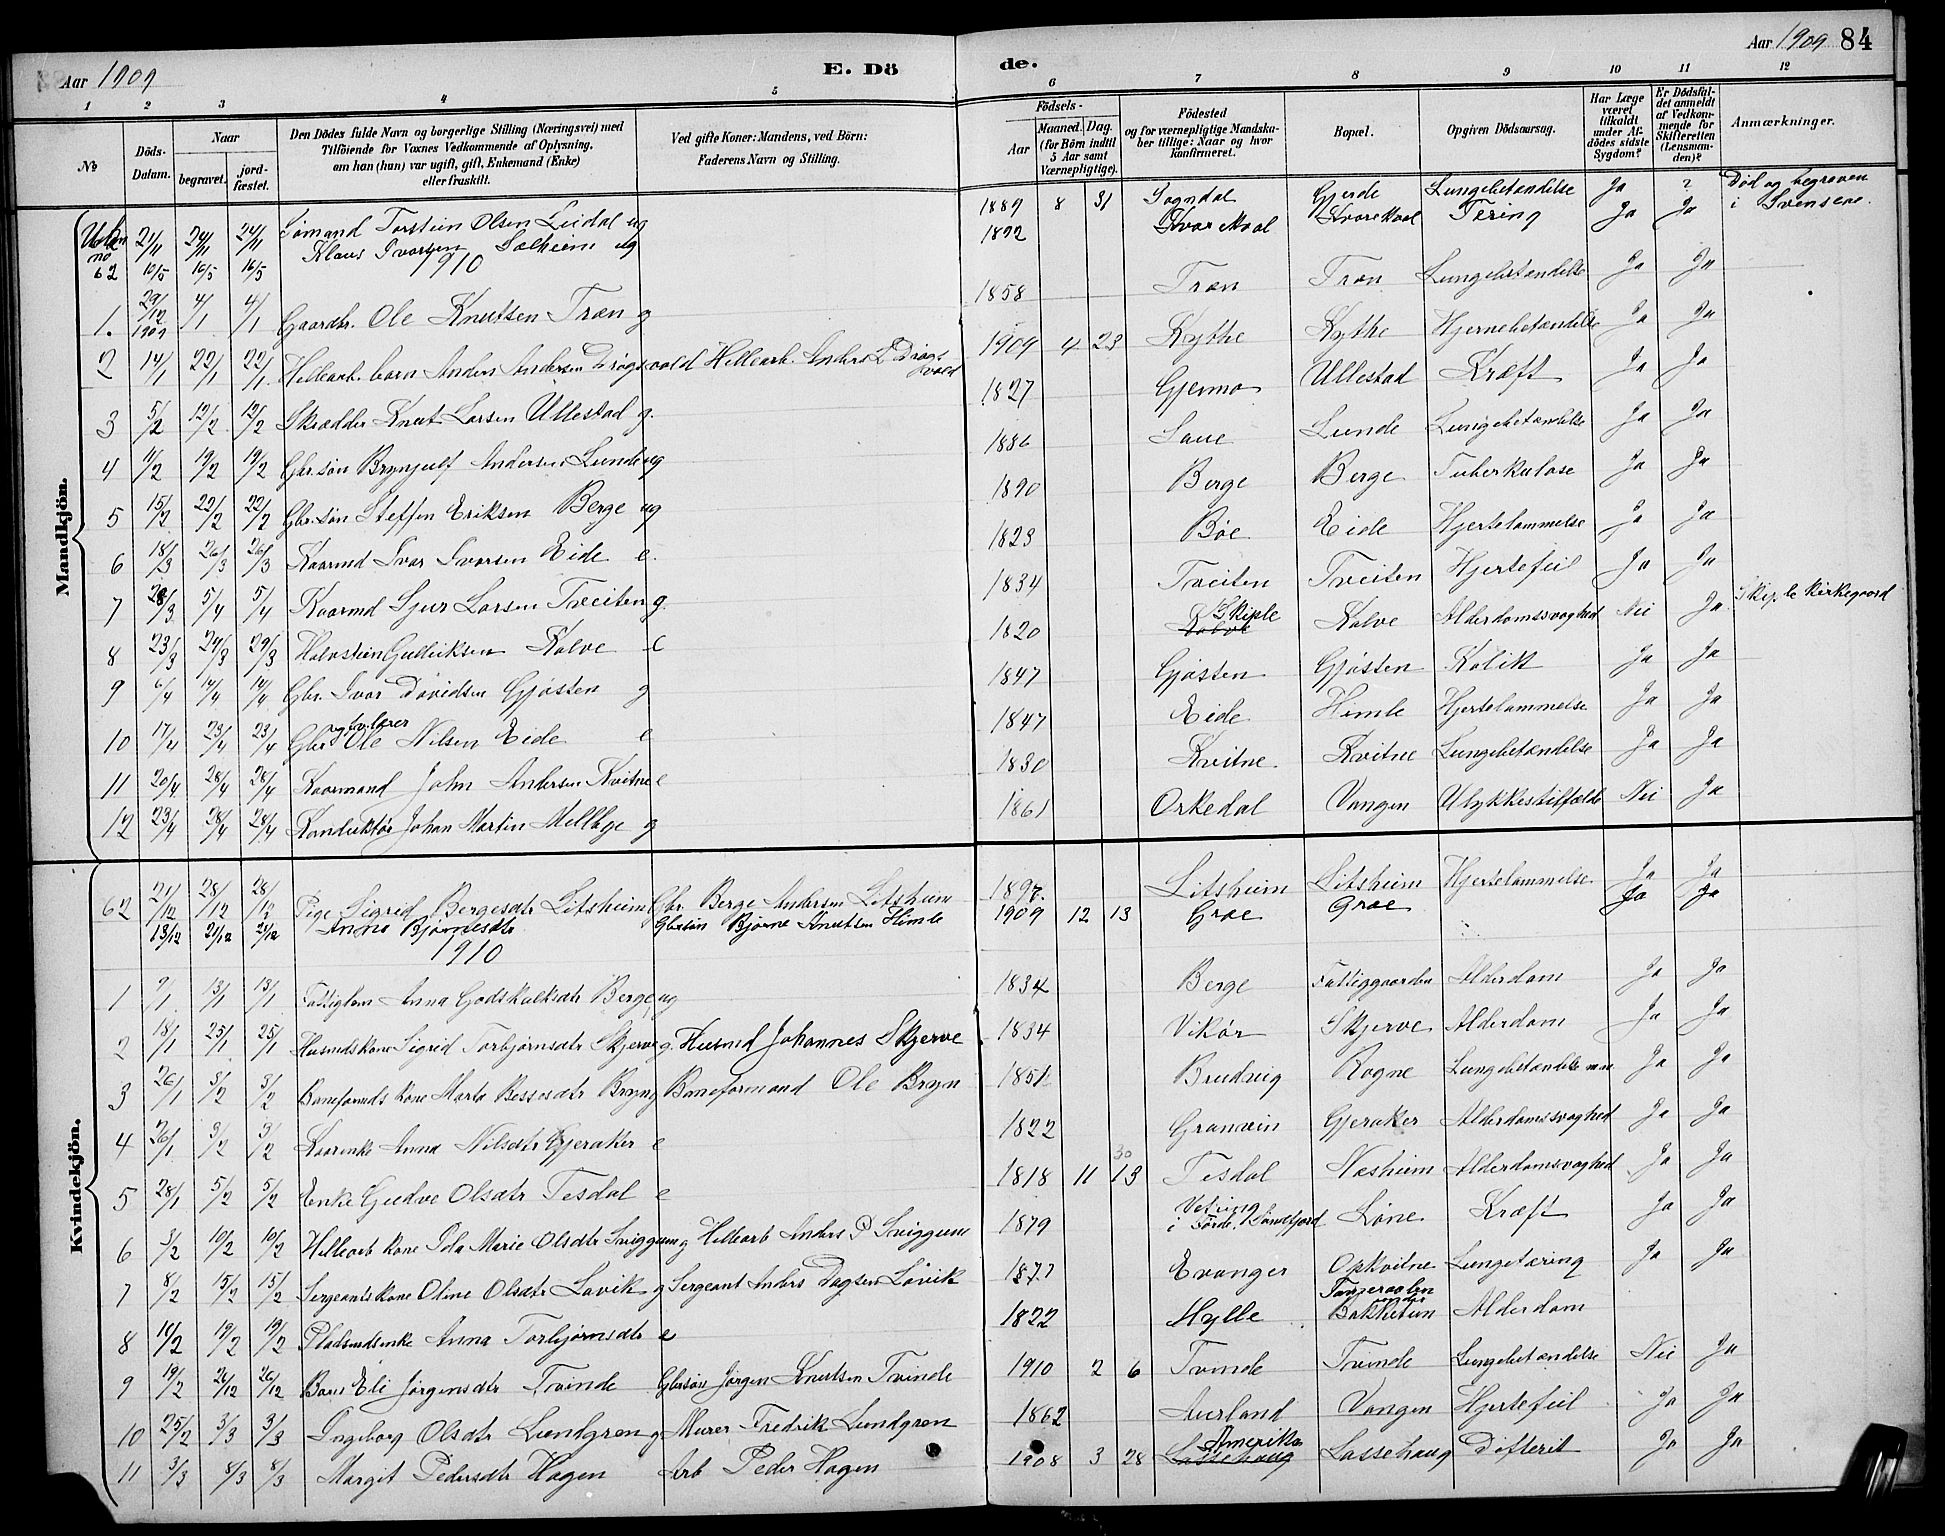 Aar 1909
E. Dö
de.
Aar 1909 84
1 2 3 4 5 6 7 8 9 10 11 12
№
Döds-Datum.
Naar
begravet.
jord-fæstet.
Den Dödes fulde Navn og borgerlige Stilling (Næringsvei) med
Tilföiende for Voxnes Vedkommende af Oplysning,
om han (hun) var ugift, gift, Enkemand (Enke)
eller fraskilt.
Ved gifte Koner: Mandens, ved Börn:
Faderens Navn og Stilling.
Födsels-
Aar
Maaned. Dag.
(for Börn indtil
5 Aar samt
Værnepligtige).
Födested
og for værnepligtige Mandska-
ber tillige: Naar og hvor
Konfirmeret.
Bopæl.
Opgiven Dödsaarsag.
Har Læge
været
tilkaldt
under Af-
dödes sidste
Sygdom?
Er Dödsfal-
det anmeldt
af Vedkom-
mende for
Skifteretten
(Lensman-
den)?
Anmærkninger.
Mandkjön.
Uden no 21/11 24/11 24/11 Sømand Torstein Olsen Leidal ug 1889 8 31 Sogndal Gjerde Lungebetændelse Ja ? Død og begraven
62 10/5 16/5 16/5 Klaus Ivarsen Sælheim ug 1892 Skorskaal Tæring Ja Ja i Svensene.
1910
1. 29/12 1909 4/1 4/1 Gaardbr. Ole Knutsen Træn g 1858 Træn Træn Lungebetændelse Ja Ja
2 14/1 22/1 22/1 Hellearb. barn Anders Andersen Drøgsvold Hellearb. Anders L Drøgsvold 1909 4 23 Kythe Kythe Hjernebetændelse Ja Ja
3 5/2 12/2 12/2 Skrædder Knut Larsen Ullestad g. 1827 Gjermo Ullestad Kræft Ja Ja
4 11/2 19/2 19/2 Gbr.søn Brynjulf Andersen Lunde ug 1886 Saue Lunde Lungebetændelse Ja Ja
5 15/2 22/2 22/2 Gbr.søn Steffen Eriksen Berge ug 1890 Berge Berge Tuberkulose Ja Ja
6 18/3 26/3 26/3 Kaarmd Ivar Ivarsen Eide e. 1823 Bøe Eide Hjertelammelse Ja Ja
7 28/3 5/4 5/4 Kaarmd Sjur Larsen Tveiten g. 1834 Tveiten Tveiten Hjertefeil Ja Ja
8 23/3 29/3 29/3 Halvstein Gulleiksen Kolve e 1820 Skiple Kolve Kolve Alderdomssvaghed Nei Ja Skiple kirkegaard
9 6/4 14/4 14/4 Gbr. Ivar Davidsen Gjøsten g 1847 Gjøsten Gjøsten Kolik Ja Ja
10 17/4 23/4 23/4 Gbr. Ole Nilsen Eide e 1847 Eide Himle Hjertelammelse Ja Ja
11 20/4 28/4 28/4 Kaarmand John Andersen Kvitne e 1830 Kvitne Kvitne Lungebetændelse Ja Ja
12 23/4 28/4 28/4 Konduktør Johan Martin Mellbye g 1861 Orkedal Vangen Ulykkestilfælde Nei Ja
Kvindekjön.
62 21/12 28/12 28/12 Pige Sigrid Bergesdtr Litsheim Gbr. Berge Andersen Litsheim 1897. Litsheim Litsheim Hjertelammelse Ja Ja
13/12 21/12 21/12 Anna Bjørnesdtr Gbrsøn Bjørne Knutsen Himle 1909 12 13 Groe Groe Ja Ja
1910
1 7/1 13/1 13/1 Fattiglem Anna Godskalksdtr Berge ug 1834 Berge Fattiggaarden Alderdom Ja Ja
2 18/1 25/1 25/1 Husmdskone Sigrid Torbjørnsdtr Skjerve g. Husmd Johannes Skjerve 1834 Vikør Skjerve Alderdom Ja Ja
3 26/1 3/2 3/2 Baneformds kone Marta Bessesdtr Bryn g Baneformand Ole Bryn 1851 Brudvig Rogne Lungebetændelse Ja Ja
4 26/1 3/2 3/2 Kaarenke Anna Nilsdtr Gjeraker e 1822 Granvin Gjeraker Alderdomssvaghed Ja Ja
5 28/1 5/2 5/2 Enke Gudve Olsdtr Tesdal e 1818 11 30 13 Tesdal Næsheim Alderdomsvaghed Ja Ja
6 3/2 10/2 10/2 Hellearb kone Ida Marie Olsdtr Sviggum g Hellearb Anders P Sviggum 1879 Vetring i Førde, Søndfjord Løne Kræft Ja Ja
7 8/2 15/2 15/2 Sergeantskone Oline Olsdtr Løvik g Sergeant Anders Dagsen Løvik 1877 Evanger Opkvitne Lungetæring Ja Ja
8 10/2 19/2 19/2 Pladsmdsenke Anna Torbjørnsdtr e 1822 Hylle Bakketun Alderdom
9 19/2 26/12 26/12 Barn Eli Jørgensdtr Tvinde Gbrsøn Jørgen Knutsen Tvinde 1910 2 6 Tvinde Tvinde Lungebetændelse Nei Ja
10 25/2 3/3 3/3 Ingeborg Olsdtr Lundgren g Murer Fredrik Lundgren 1862 Aurland Vangen Hjertefeil Ja Ja
11 3/3 8/3 8/3 Margit Pedersdtr Hagen Arb Peder Hagen 1908 3 28 Amerika Lassehaug Lassehaug Difterit Ja Ja